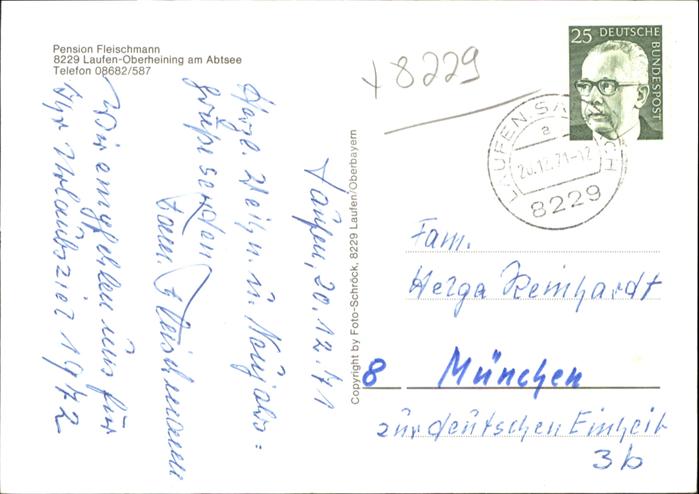 Pension Fleischmann
8229 Laufen-Oberheining am Abtsee
Telefon 08682/587
+ 8229
25 DEUTSCHE
BUNDESPOST
LAUFEN, SALZACH
a
20.12.71-12
8229
Laufen, 20.12.71
Herzl. Weihn. u. Neujahrs=
grüße senden
Fam. Fleischmann
Wir empfehlen uns für
Ihr Urlaubsziel 1972
Copyright by Foto-Schröck, 8229 Laufen/Oberbayern
Fam.
Helga Reinhardt
8 München
zur deutschen Einheit
3b